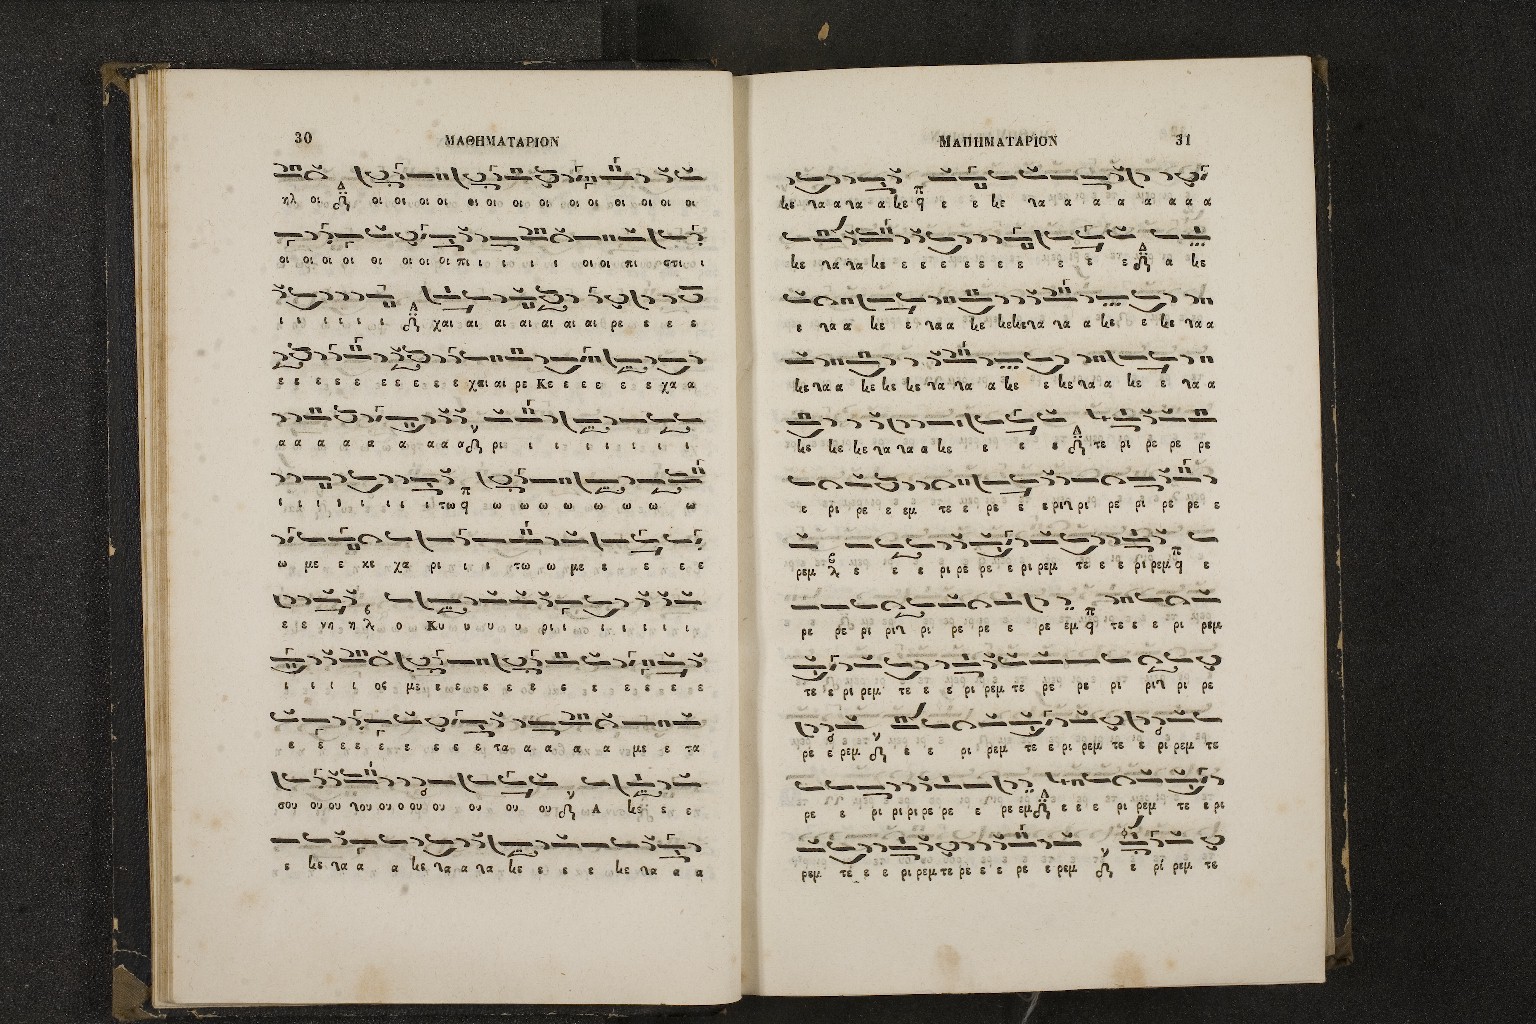 30
ΜΑΘΗΜΑΤΑΡΙΟΝ
ηλ οι οι οι οι οι οι οι οι οι οι οι οι οι οι
οι οι οι οι οι οι οι οι πι ι ι ι ι οι οι πι στι ι
ι ι ι ι ι ι χαι αι αι αι αι αι αι ρε ε ε ε
ε ε ε ε ε ε ε ε ε ε χαι αι ρε Κε ε ε ε ε ε χα α
α α α α α α α α α ρι ι ι ι ι ι ι ι
ι ι ι ι ι ι ι ι τω ω ω ω ω ω ω ω ω
ω με ε κε χα ρι ι ι τω ω με ε ε ε ε
ε ε νη η ο Κυ υ υ υ ρι ι ι ι ι ι ι
ι ι ι ι ος με ε ε ε ε ε ε ε ε ε ε ε ε ε
ε ε ε ε ε ε ε ε ε τα α α α α με ε τα
σου ου ου γου ου ο ου ου ου ου ου Α κε ε ε
ε κε γα α α κε γα α γα κε ε ε ε κε γα α α
ΜΑΠΗΜΑΤΑΡΙΟΝ
31
κε γα α γα α κε ε ε κε γα α α α α α α α
κε γα γα κε ε ε ε ε ε ε ε ε ε ε α κε
ε γα α κε ε γα α κε κεκεγα γα α κε ε κε γα α
κε γα α κε κε κε γα γα α κε ε κε γα α κε ε γα α
κε κε κε γα γα α κε ε ε ε τε ρι ρε ρε ρε
ε ρι ρε ε εμ τε ε ρε ε ε ριγ ρι ρε ρι ρε ρε ε
ρεμ ε ε ε ρι ρε ρε ε ρι ρεμ τε ε ε ρι ρεμ ε
ρε ρε ρι ριγ ρι ρε ρε ε ρε εμ τε ε ε ρι ρεμ
τε ε ρι ρεμ τε ε ε ρι ρεμ τε ρε ρε ρι ριγ ρι ρε
ρε ε ρεμ ε ε ρι ρεμ τε ε ρι ρεμ τε ε ρι ρεμ τε
ρε ε ρι ρι ρι ρε ρε ε ρε εμ ε ε ε ρι ρεμ τε ε ρι
ρεμ τε ε ε ρι ρεμ τε ρε ε ε ρε ε ρεμ ε ρι ρεμ τε